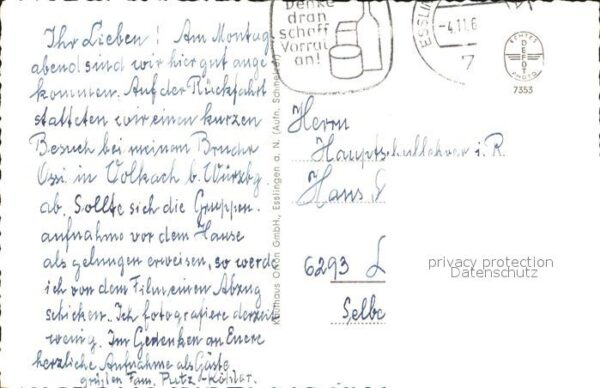 Ihr Lieben! Am Montag
abend sind wir hier gut ange
kommen. Auf der Rückfahrt
statteten wir einen kurzen
Besuch bei meinem Bruder
Ossi in Volkach b. Würzbg.
ab. Sollte sich die Gruppen-
aufnahme vor dem Hause
als gelungen erweisen, so werde
ich von dem Film einen Abzug
schicken. Ich fotografiere derzeit
wenig. Im Gedenken an Euere
herzliche Aufnahme als Gäste
grüßen Fam.
Denke
dran
schaff
Vorrat
an!
ESSLIN
-4.11.6
7
ECHTES
DEFOT
PHOTO
7353
Kaufhaus GmbH., Esslingen a. N. (Aufn. Schneider)
Herrn
Hauptschullehrer i. R.
Hans S
6293 L
Selbe
privacy protection
Datenschutz